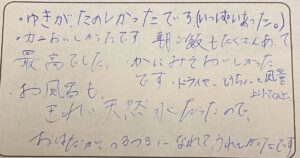 ・ゆきがたのしかったです(いっぱいあった。)
・カニおいしかったです 朝ご飯もたくさんあって
最高でした。 かにみそおいしかった
です ・ドライヤー 風量
・お風呂も、
きれい 天然 だったので、
おはだがつるつるになれて、うれしかったです